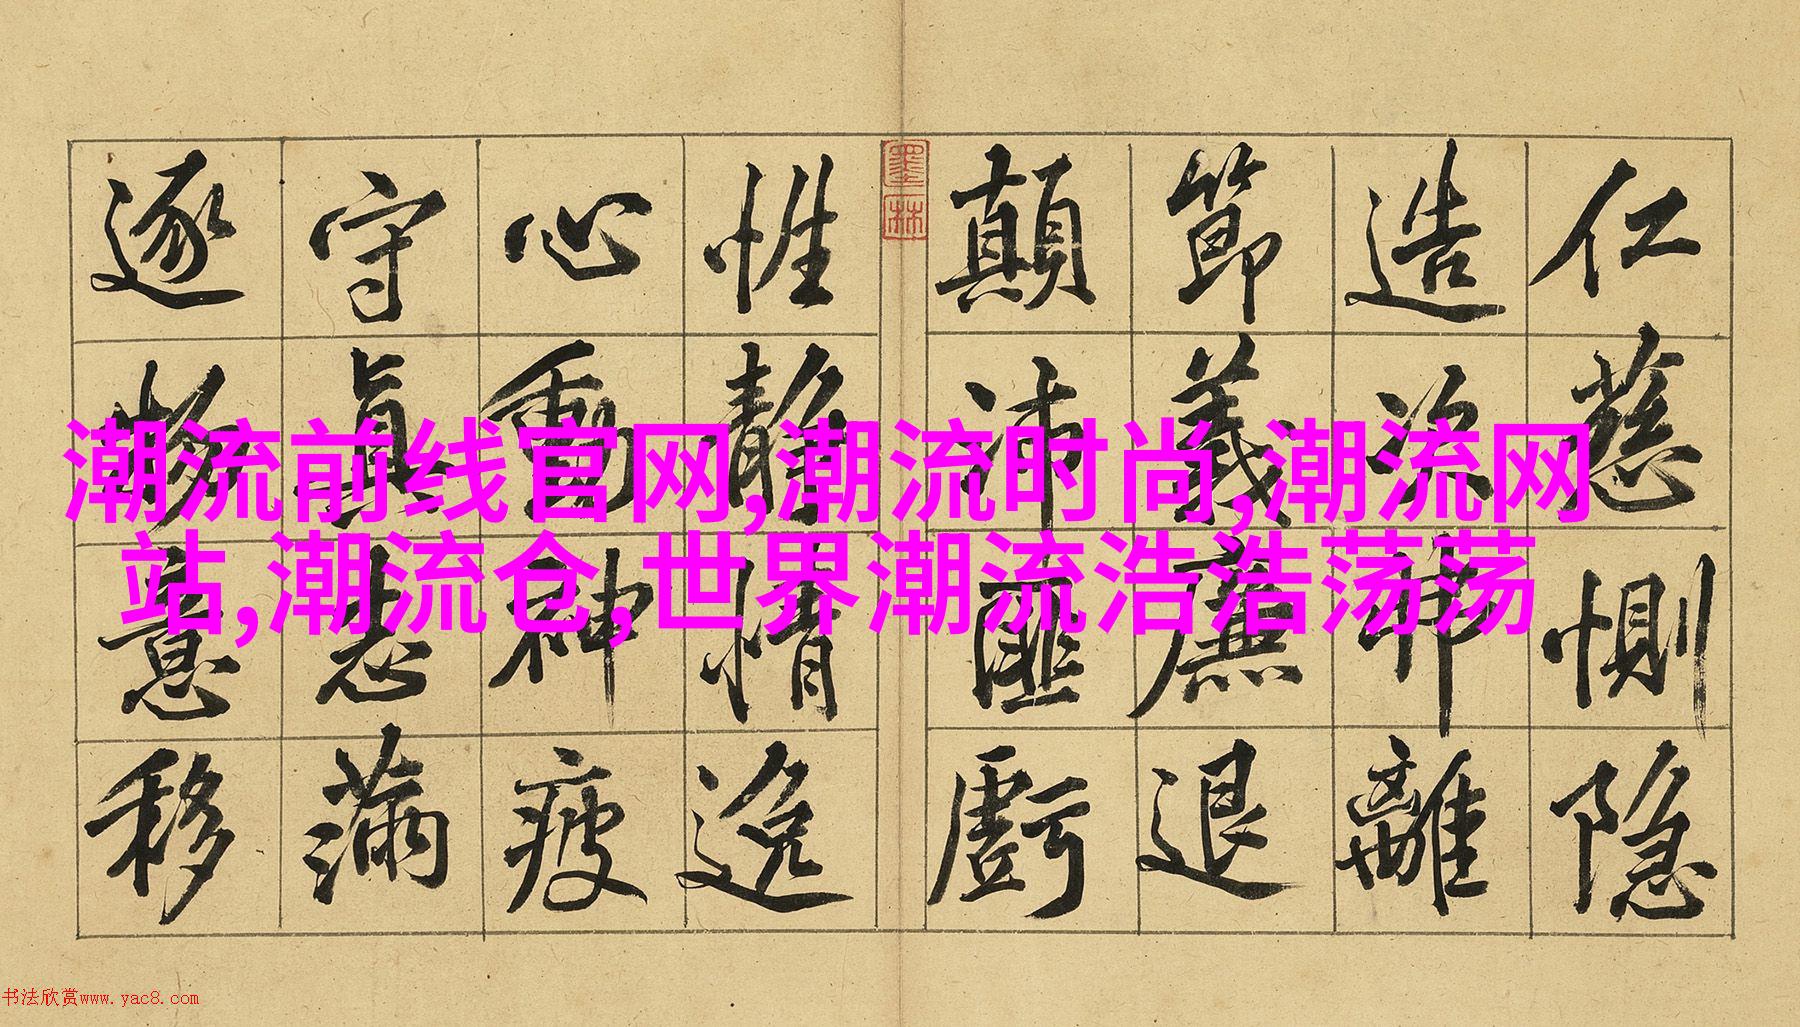 仁慈惻隐
造次弗離
節義廉退
顛沛匪虧
墨林
性靜情逸
心動神疲
守真志滿
逐物意移
潮流前线官网,潮流时尚,潮流网
站,潮流仓,世界潮流浩浩荡荡
书法欣赏www.yac8.com